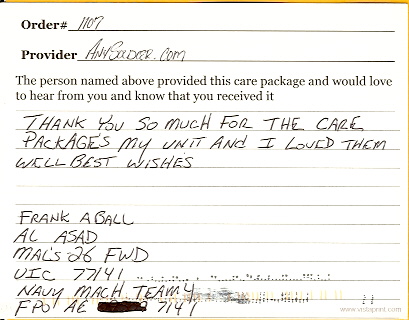 Order# 1107
Provider AnySoldier.com
The person named above provided this care package and would love
to hear from you and know that you received it
THANK YOU SO MUCH FOR THE CARE
PACKAGES MY UNIT AND I LOVED THEM
WELL BEST WISHES
FRANK A BALL
AL ASAD
MAL'S 26 FWD
UIC 77141
NAVY MACH TEAM 4
FPO AE 7141
www.vistaprint.com